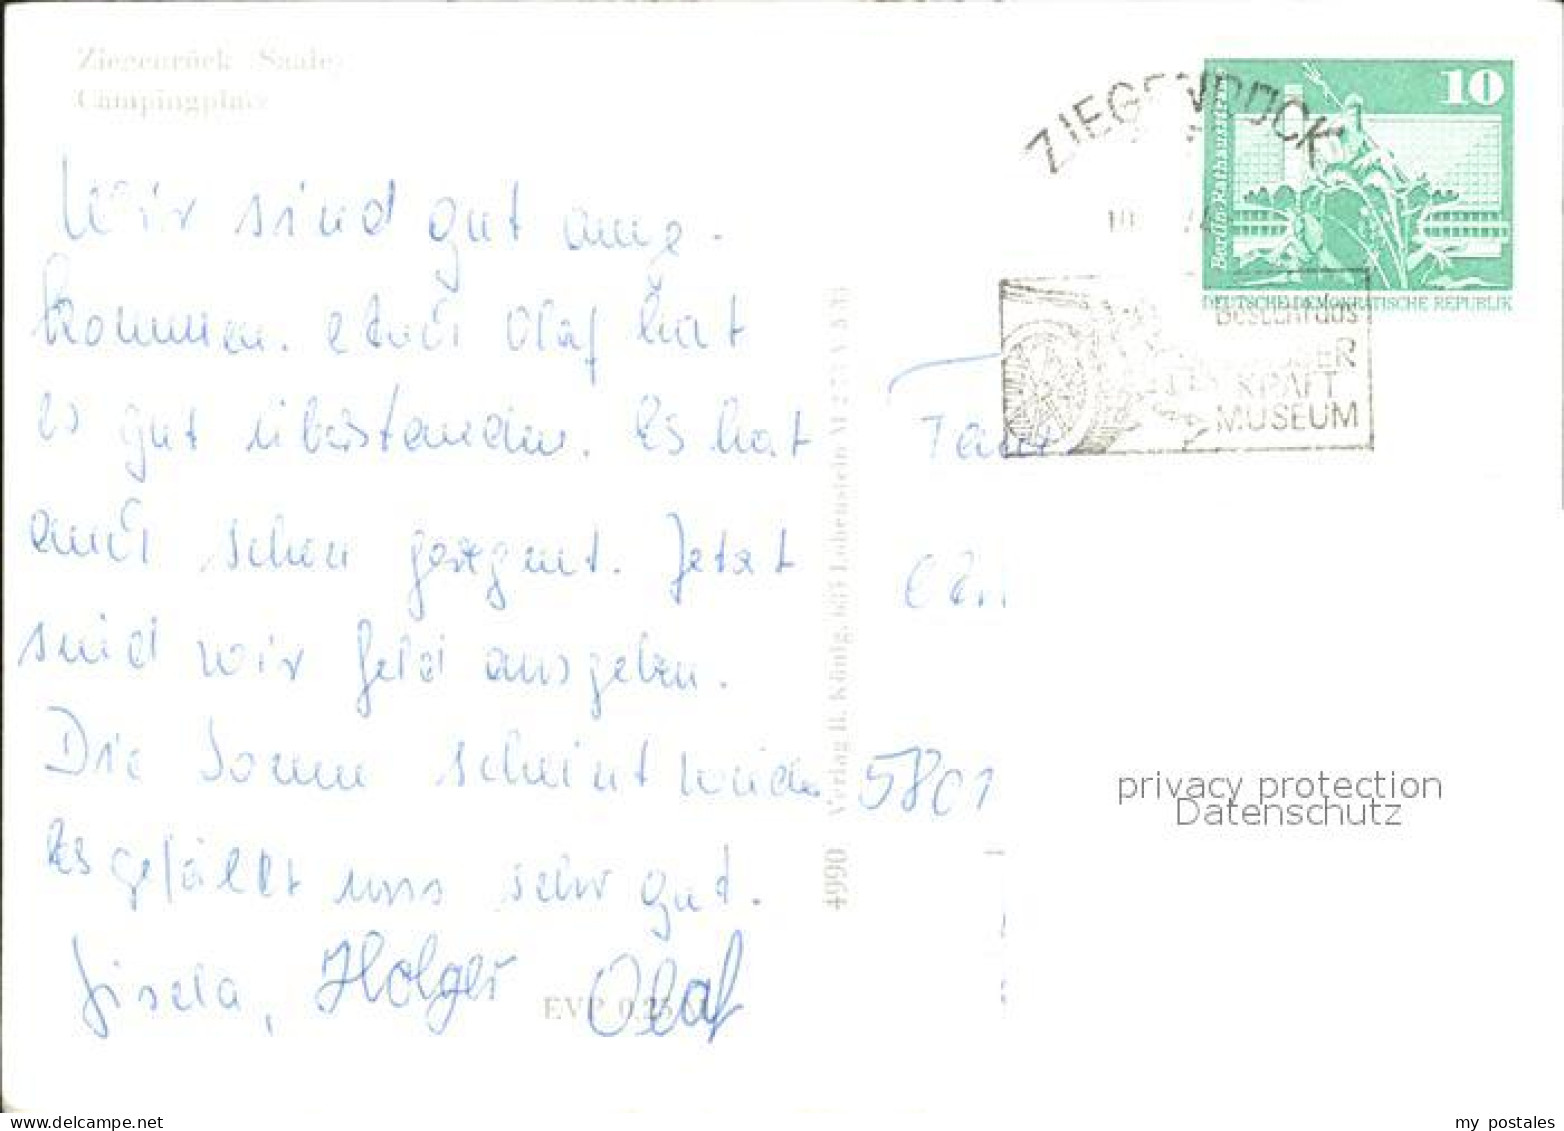 Ziegenrück (Saale)
Campingplatz
Wir sind gut ange-
kommen. Auch Olaf hat
es gut überstanden. Es hat
auch schon geregnet. Jetzt
sind wir Geld ausgeben.
Die Sonne scheint wieder
Es gefällt uns sehr gut.
Gisela, Holger Olaf
EVP 0,25 M
4990 Verlag H. König, 685 Lobenstein
ZIEGENRÜCK
10
Berlin Rathausstraße
DEUTSCHE DEMOKRATISCHE REPUBLIK
Besucht das
KRAFT
MUSEUM
5801
privacy protection
Datenschutz
www.delcampe.net
my_postales